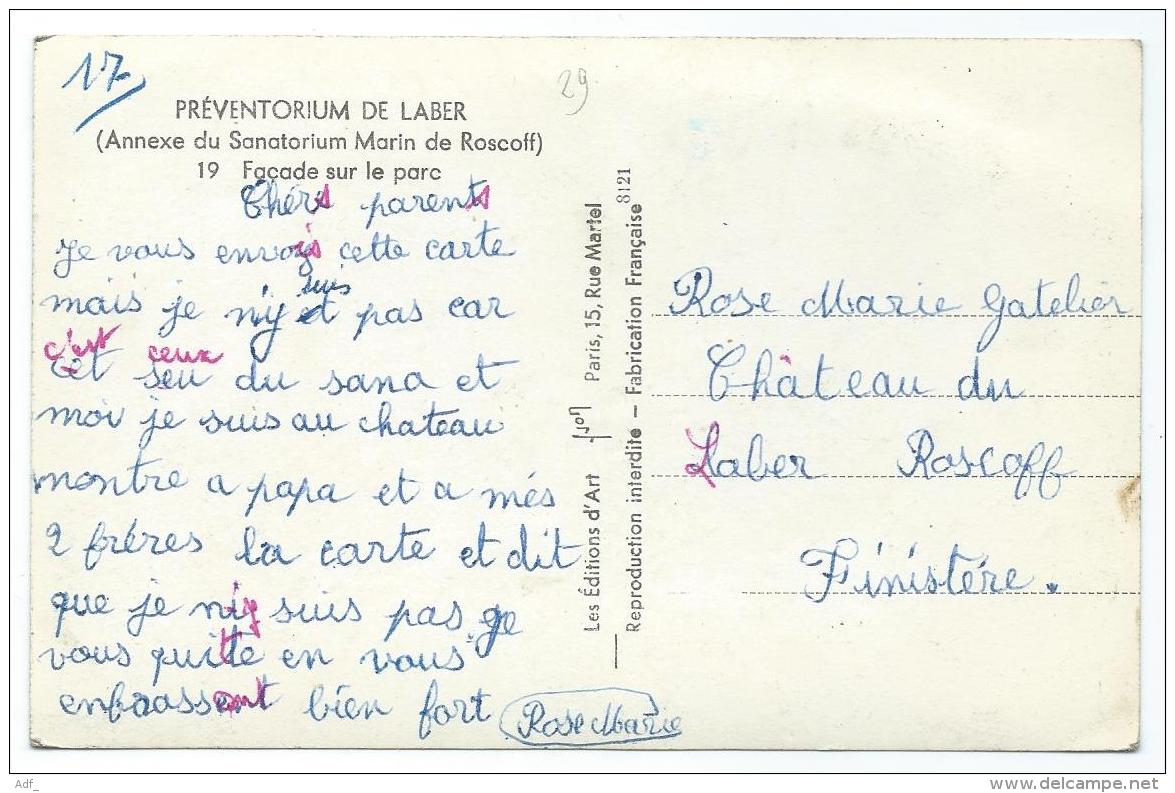 17
29
PRÉVENTORIUM DE LABER
(Annexe du Sanatorium Marin de Roscoff)
19 Façade sur le parc
Chérs parents
Je vous envois cette carte
mais je n'y suis pas car
c'est ceux
cet seu du sana et
moi je suis au chateau
montre a papa et a més
2 fréres la carte et dit
que je n'y suis pas ge
vous quitte en vous
enbrassant bien fort
Rose Marie
Les Éditions d'Art Paris, 15, Rue Martel
Reproduction interdite — Fabrication Française 8121
Rose Marie Gatelier
Château du
Laber Roscoff
Finistére.
Adf_
www.delcampe.net